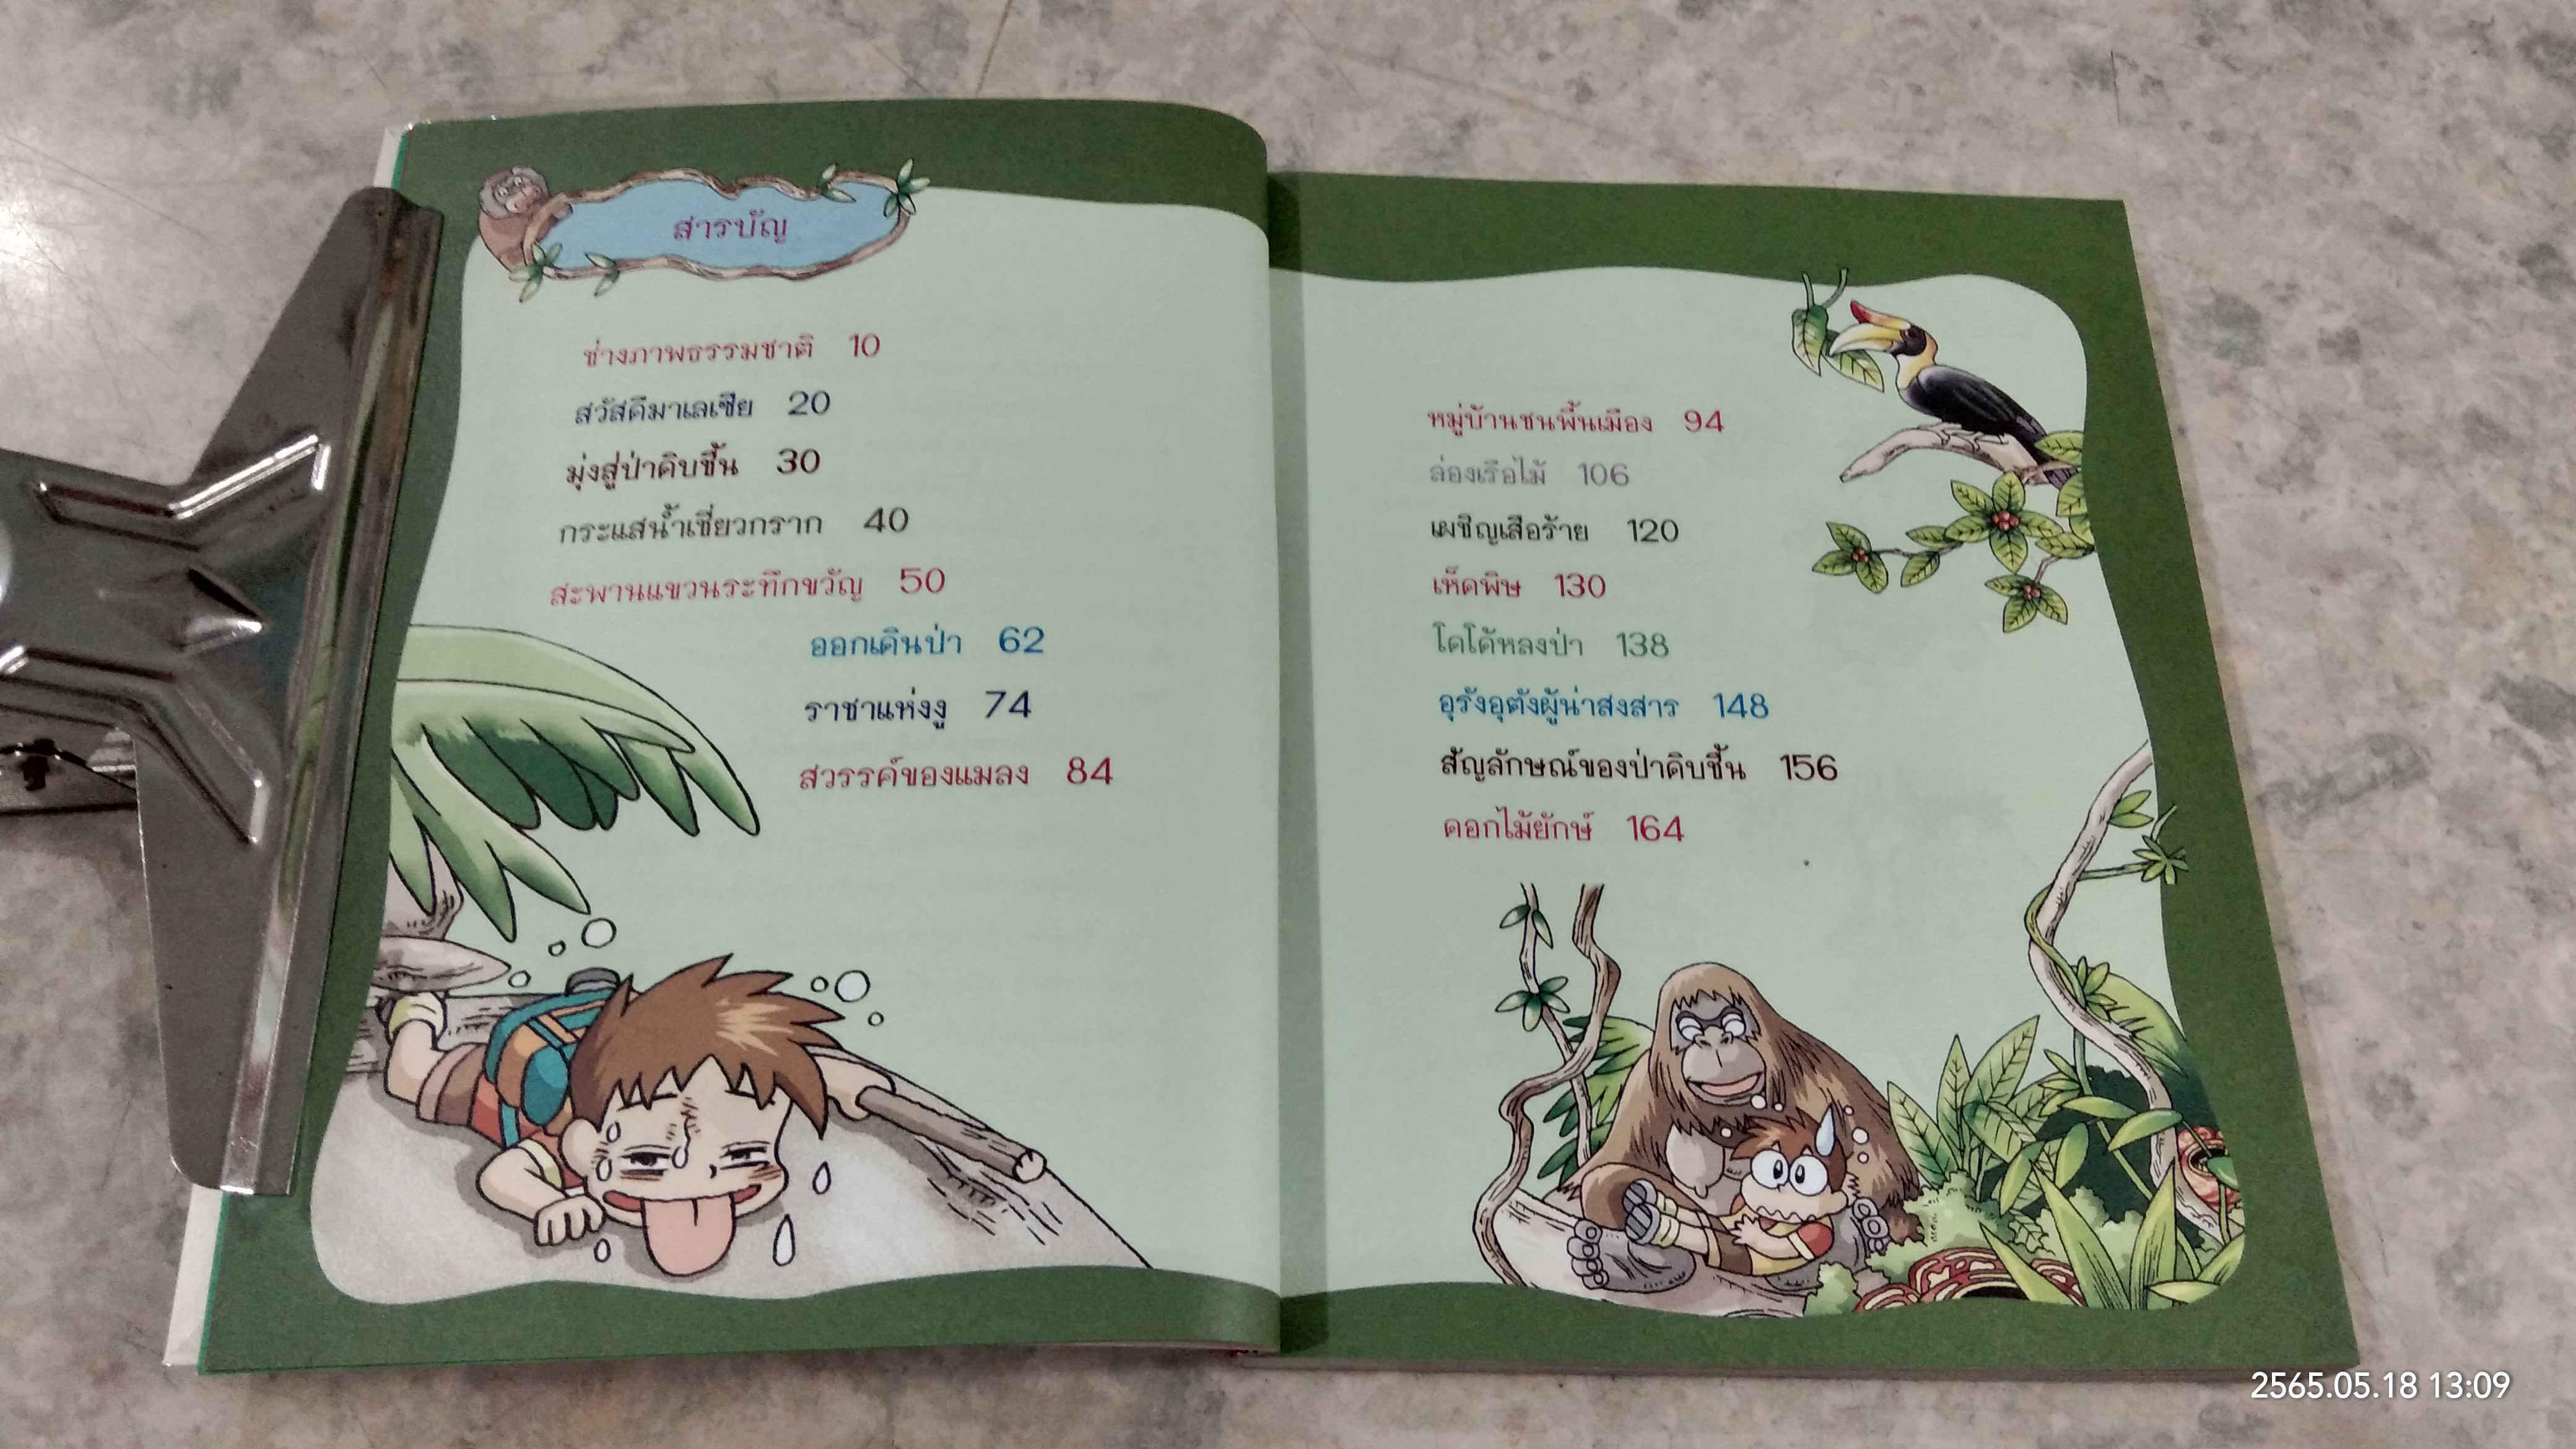 สารบัญ
ช่างภาพธรรมชาติ 10
สวัสดีมาเลเซีย 20
มุ่งสู่ป่าดิบชื้น 30
กระแสน้ำเชี่ยวกราก 40
สะพานแขวนระทึกขวัญ 50
ออกเดินป่า 62
ราชาแห่งงู 74
สวรรค์ของแมลง 84
หมู่บ้านชนพื้นเมือง 94
ล่องเรือไม้ 106
เผชิญเสือร้าย 120
เห็ดพิษ 130
โดโด้หลงป่า 138
อุรังอุตังผู้น่าสงสาร 148
สัญลักษณ์ของป่าดิบชื้น 156
ดอกไม้ยักษ์ 164
2565.05.18 13:09